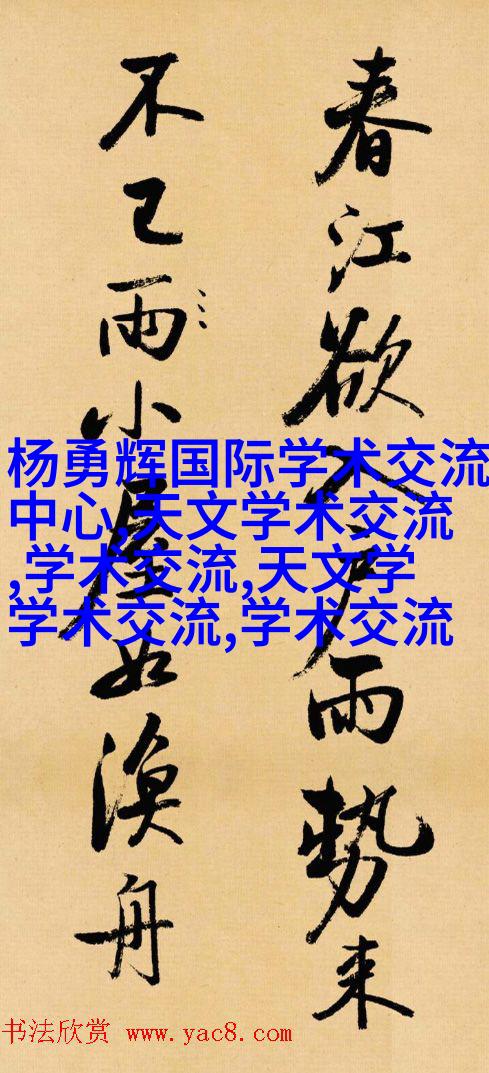 春江欲入户雨势来
不已雨〻〻小屋如渔舟
杨勇辉国际学术交流
中心,天文学术交流
,学术交流,天文学
学术交流,学术交流
书法欣赏 www.yac8.com